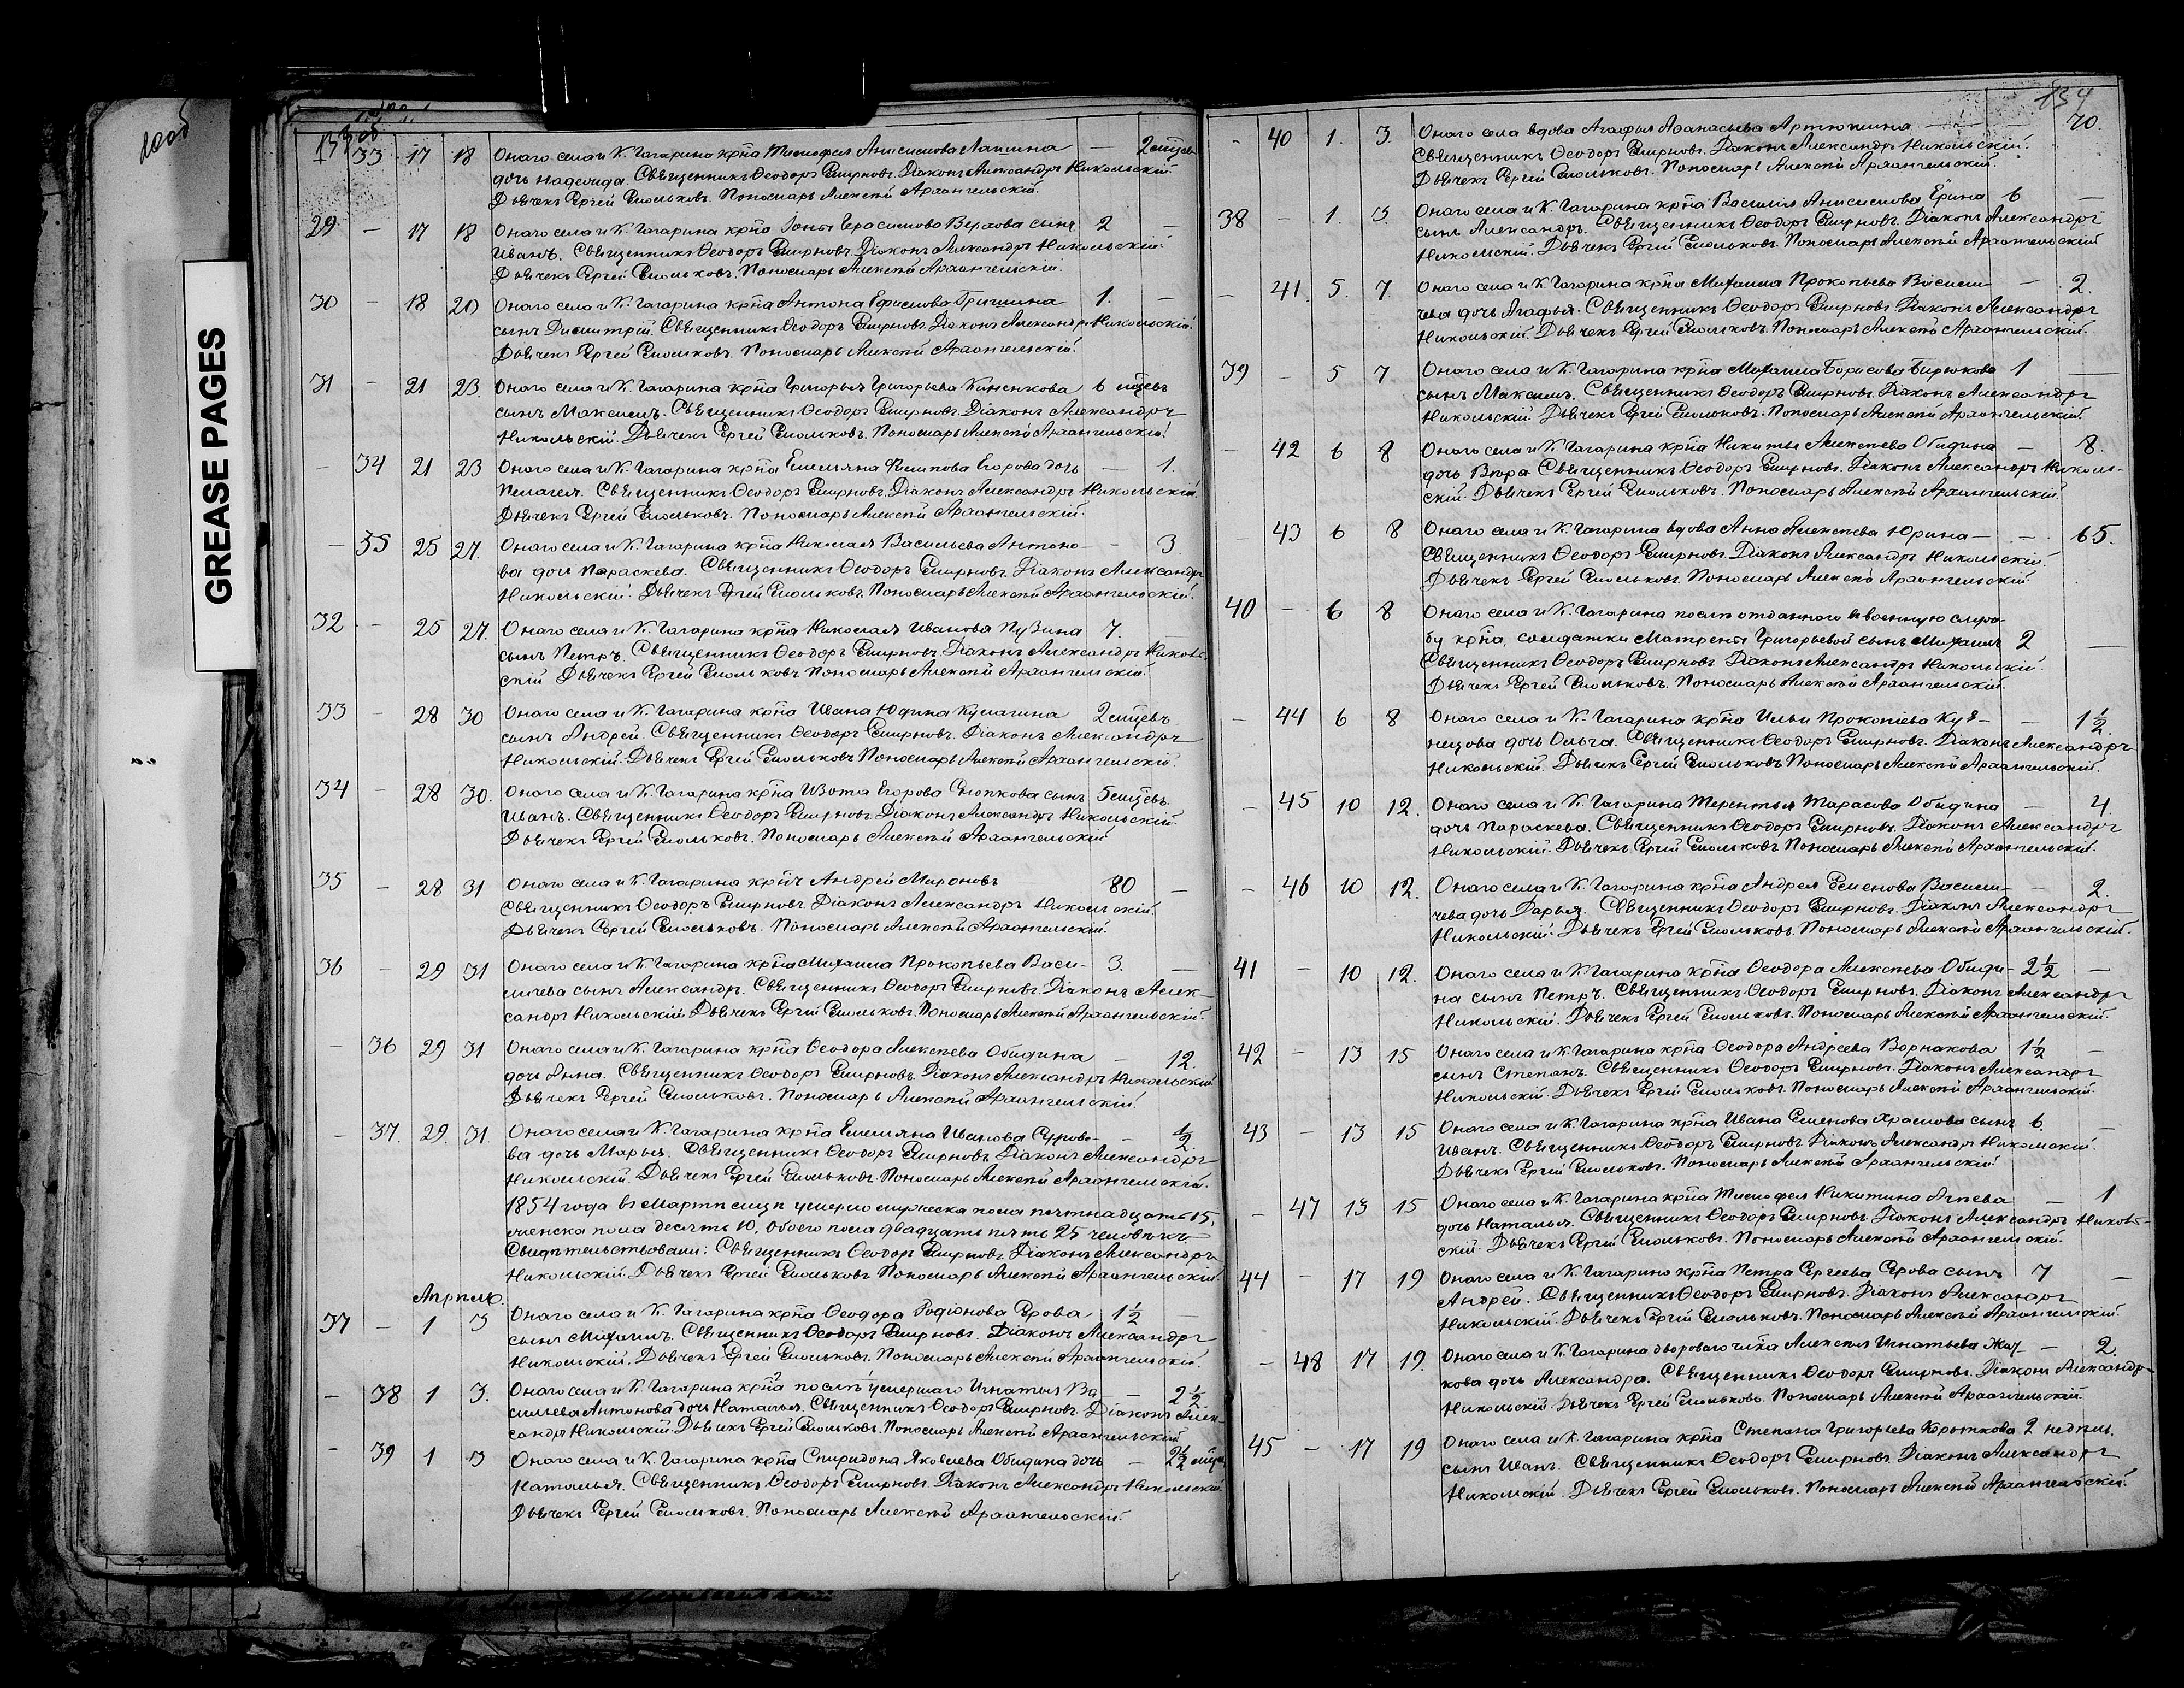 GREASE PAGES
133 об
33 17 18 Онаго села и К. Гагарина крна Тимофея Анисимова Лапшина — 2 мцев
дочь Надежда. Священникъ Ѳеодоръ Смирновъ. Діаконъ Александръ Никольскій.
Дьячекъ Сергей Смольковъ. Пономарь Алексѣй Архангельскій.
29 — 17 18 Онаго села и К. Гагарина крна Іоны Герасимова Верхова сынъ 2 —
Иванъ. Священникъ Ѳеодоръ Смирновъ. Діаконъ Александръ Никольскій.
Дьячекъ Сергей Смольковъ. Пономарь Алексѣй Архангельскій.
30 — 18 20 Онаго села и К. Гагарина крна Антона Ефимова Гришина 1. —
сынъ Димитрій. Священникъ Ѳеодоръ Смирновъ. Діаконъ Александръ Никольскій.
Дьячекъ Сергей Смольковъ. Пономарь Алексѣй Архангельскій.
31 — 21 23. Онаго села и К. Гагарина крна Григорья Григорьева Киненкова 6 мцевъ
сынъ Максимъ. Священникъ Ѳеодоръ Смирновъ. Діаконъ Александръ
Никольскій. Дьячекъ Сергей Смольковъ. Пономарь Алексѣй Архангельскій.
— 34 21 23 Онаго села и К. Гагарина крна Емельяна Филипова Егорова дочь — 1.
Пелагея. Священникъ Ѳеодоръ Смирновъ. Діаконъ Александръ Никольскій.
Дьячекъ Сергей Смольковъ. Пономарь Алексѣй Архангельскій.
— 35 25 27. Онаго села и К. Гагарина крна Николая Васильева Антоно- — 3
ва дочь Параскева. Священникъ Ѳеодоръ Смирновъ. Діаконъ Александръ
Никольскій. Дьячекъ Сергей Смольковъ. Пономарь Алексѣй Архангельскій.
32 — 25 27. Онаго села и К. Гагарина крна Николая Иванова Пузина 7. —
сынъ Петръ. Священникъ Ѳеодоръ Смирновъ. Діаконъ Александръ Николь-
скій Дьячекъ Сергей Смольковъ Пономарь Алексѣй Архангельскій.
33 — 28 30 Онаго села и К. Гагарина крна Ивана Юдина Кулагина 2 мцевъ
сынъ Андрей. Священникъ Ѳеодоръ Смирновъ. Діаконъ Александръ
Никольскій. Дьячекъ Сергей Смольковъ Пономарь Алексѣй Архангельскій.
34 — 28 30. Онаго села и К. Гагарина крна Изота Егорова сынъ 5 мцевъ
Иванъ. Священникъ Ѳеодоръ Смирновъ. Діаконъ Александръ Никольскій.
Дьячекъ Сергей Смольковъ. Пономарь Алексѣй Архангельскій
35 — 28 31 Онаго села и К. Гагарина крнъ Андрей Мироновъ 80 —
Священникъ Ѳеодоръ Смирновъ. Діаконъ Александръ Никольскій.
Дьячекъ Сергей Смольковъ. Пономарь Алексѣй Архангельскій.
36 — 29 31 Онаго села и К. Гагарина крна Михаила Прокопьева Васи- 3. —
личева сынъ Александръ. Священникъ Ѳеодоръ Смирновъ. Діаконъ Алек-
сандръ Никольскій. Дьячекъ Сергей Смольковъ. Пономарь Алексѣй Архангельскій.
— 36 29 31 Онаго села и К. Гагарина крна Ѳеодора Алексѣева Обидина — 12.
дочь Анна. Священникъ Ѳеодоръ Смирновъ. Діаконъ Александръ Никольскій
Дьячекъ Сергей Смольковъ. Пономарь Алексѣй Архангельскій.
— 37. 29. 31. Онаго села и К. Гагарина крна Емельяна Иванова Сурово- — 1/2
ва дочь Марья. Священникъ Ѳеодоръ Смирновъ. Діаконъ Александръ
Никольскій. Дьячекъ Сергей Смольковъ. Пономарь Алексѣй Архангельскій.
1854 года въ Мартѣ мцѣ умерло мужеска пола пятнадцать 15,
женска пола десять 10, обоего пола двадцать пять 25 человѣкъ
Свидѣтельствовали: Священникъ Ѳеодоръ Смирновъ Діаконъ Александръ
Никольскій. Дьячекъ Сергей Смольковъ Пономарь Алексѣй Архангельскій.
Апрѣль.
37 — 1 3 Онаго села и К. Гагарина крна Ѳеодора Родіонова Серова 1 1/2 —
сынъ Михаилъ. Священникъ Ѳеодоръ Смирновъ. Діаконъ Александръ
Никольскій. Дьячекъ Сергей Смольковъ. Пономарь Алексѣй Архангельскій.
— 38 1 3. Онаго села и К. Гагарина крна послѣ умершаго Игнатья Ва- — 2 1/2
сильева Антонова дочь Наталья. Священникъ Ѳеодоръ Смирновъ. Діаконъ Алек-
сандръ Никольскій. Дьячекъ Сергей Смольковъ. Пономарь Алексѣй Архангельскій
— 39 1 3 Онаго села и К. Гагарина крна Спиридона Яковлева Обидина дочь — 2 1/2 мцов
Наталья. Священникъ Ѳеодоръ Смирновъ. Діаконъ Александръ Никольскій.
Дьячекъ Сергей Смольковъ. Пономарь Алексѣй Архангельскій.
134
— 40 1. 3. Онаго села вдова Агафья Афанасьева Артюшина — 70.
Священникъ Ѳеодоръ Смирновъ. Діаконъ Александръ Никольскій.
Дьячекъ Сергей Смольковъ. Пономарь Алексѣй Архангельскій.
38 — 1. 3 Онаго села и К. Гагарина крна Василья Анисимова Ерина 6 —
сынъ Александръ. Священникъ Ѳеодоръ Смирновъ. Діаконъ Александръ
Никольскій. Дьячекъ Сергей Смольковъ. Пономарь Алексѣй Архангельскій
— 41. 5. 7. Онаго села и К. Гагарина крна Михаила Прокопьева Васили- — 2.
чева дочь Агафья. Священникъ Ѳеодоръ Смирновъ. Діаконъ Александръ
Никольскій. Дьячекъ Сергей Смольковъ. Пономарь Алексѣй Архангельскій.
39 — 5 7 Онаго села и К. Гагарина крна Михаила Борисова Бирюкова 1 —
сынъ Максимъ. Священникъ Ѳеодоръ Смирновъ. Діаконъ Александръ
Никольскій. Дьячекъ Сергей Смольковъ. Пономарь Алексѣй Архангельскій.
— 42 6 8 Онаго села и К. Гагарина крна Никиты Алексѣева Обидина — 8.
дочь Вѣра Священникъ Ѳеодоръ Смирновъ. Діаконъ Александръ Николь-
скій. Дьячекъ Сергей Смольковъ. Пономарь Алексѣй Архангельскій.
43 6 8 Онаго села и К. Гагарина вдова Анна Алексѣева Юрина — — 65.
Священникъ Ѳеодоръ Смирновъ. Діаконъ Александръ Никольскій.
Дьячекъ Сергей Смольковъ. Пономарь Алексѣй Архангельскій
40 — 6 8 Онаго села и К. Гагарина послѣ отданнаго въ военную служ-
бу крна, солдатки Матрены Григорьевой сынъ Михаилъ 2 —
Священникъ Ѳеодоръ Смирновъ. Діаконъ Александръ Никольскій.
Дьячекъ Сергей Смольковъ. Пономарь Алексѣй Архангельскій.
— 44 6 8 Онаго села и К. Гагарина крна Ильи Прокопіева Куз- — 1 1/2.
нецова дочь Ольга. Священникъ Ѳеодоръ Смирновъ. Діаконъ Александръ
Никольскій. Дьячекъ Сергей Смольковъ Пономарь Алексѣй Архангельскій.
— 45 10 12. Онаго села и К. Гагарина Терентья Тарасова Обидина — 4.
дочь Параскева. Священникъ Ѳеодоръ Смирновъ. Діаконъ Александръ
Никольскій. Дьячекъ Сергей Смольковъ Пономарь Алексѣй Архангельскій.
— 46 10 12. Онаго села и К. Гагарина крна Андрея Семенова Васили- — 2.
чева дочь Дарья. Священникъ Ѳеодоръ Смирновъ. Діаконъ Александръ
Никольскій. Дьячекъ Сергей Смольковъ. Пономарь Алексѣй Архангельскій.
41 — 10 12. Онаго села и К. Гагарина крна Ѳеодора Алексѣева Обиди- 2 1/2 —
на сынъ Петръ. Священникъ Ѳеодоръ Смирновъ. Діаконъ Александръ
Никольскій. Дьячекъ Сергей Смольковъ. Пономарь Алексѣй Архангельскій.
42 — 13 15 Онаго села и К. Гагарина крна Ѳеодора Андреева Ворнакова 1 1/2 —
сынъ Степанъ. Священникъ Ѳеодоръ Смирновъ. Діаконъ Александръ
Никольскій. Дьячекъ Сергей Смольковъ. Пономарь Алексѣй Архангельскій.
43 — 13 15 Онаго села и К. Гагарина крна Ивана Семенова Храмова сынъ 6. —
Иванъ. Священникъ Ѳеодоръ Смирновъ. Діаконъ Александръ Никольскій.
Дьячекъ Сергей Смольковъ. Пономарь Алексѣй Архангельскій
— 47 13 15 Онаго села и К. Гагарина крна Тимофея Никитина Агѣева — 1
дочь Наталья. Священникъ Ѳеодоръ Смирновъ. Діаконъ Александръ Николь-
скій. Дьячекъ Сергей Смольковъ. Пономарь Алексѣй Архангельскій.
44 — 17 19 Онаго села и К. Гагарина крна Петра Сергеева Серова сынъ 7 —
Андрей. Священникъ Ѳеодоръ Смирновъ. Діаконъ Александръ
Никольскій. Дьячекъ Сергей Смольковъ. Пономарь Алексѣй Архангельскій.
— 48 17 19. Онаго села и К. Гагарина двороваго члка Алексѣя Игнатьева — 2.
кова дочь Александра. Священникъ Ѳеодоръ Смирновъ. Діаконъ Александръ
Никольскій. Дьячекъ Сергей Смольковъ. Пономарь Алексѣй Архангельскій.
45 — 17 19 Онаго села и К. Гагарина крна Степана Григорьева Короткова 2 недѣль.
сынъ Иванъ. Священникъ Ѳеодоръ Смирновъ. Діаконъ Александръ
Никольскій. Дьячекъ Сергей Смольковъ. Пономарь Алексѣй Архангельскій.